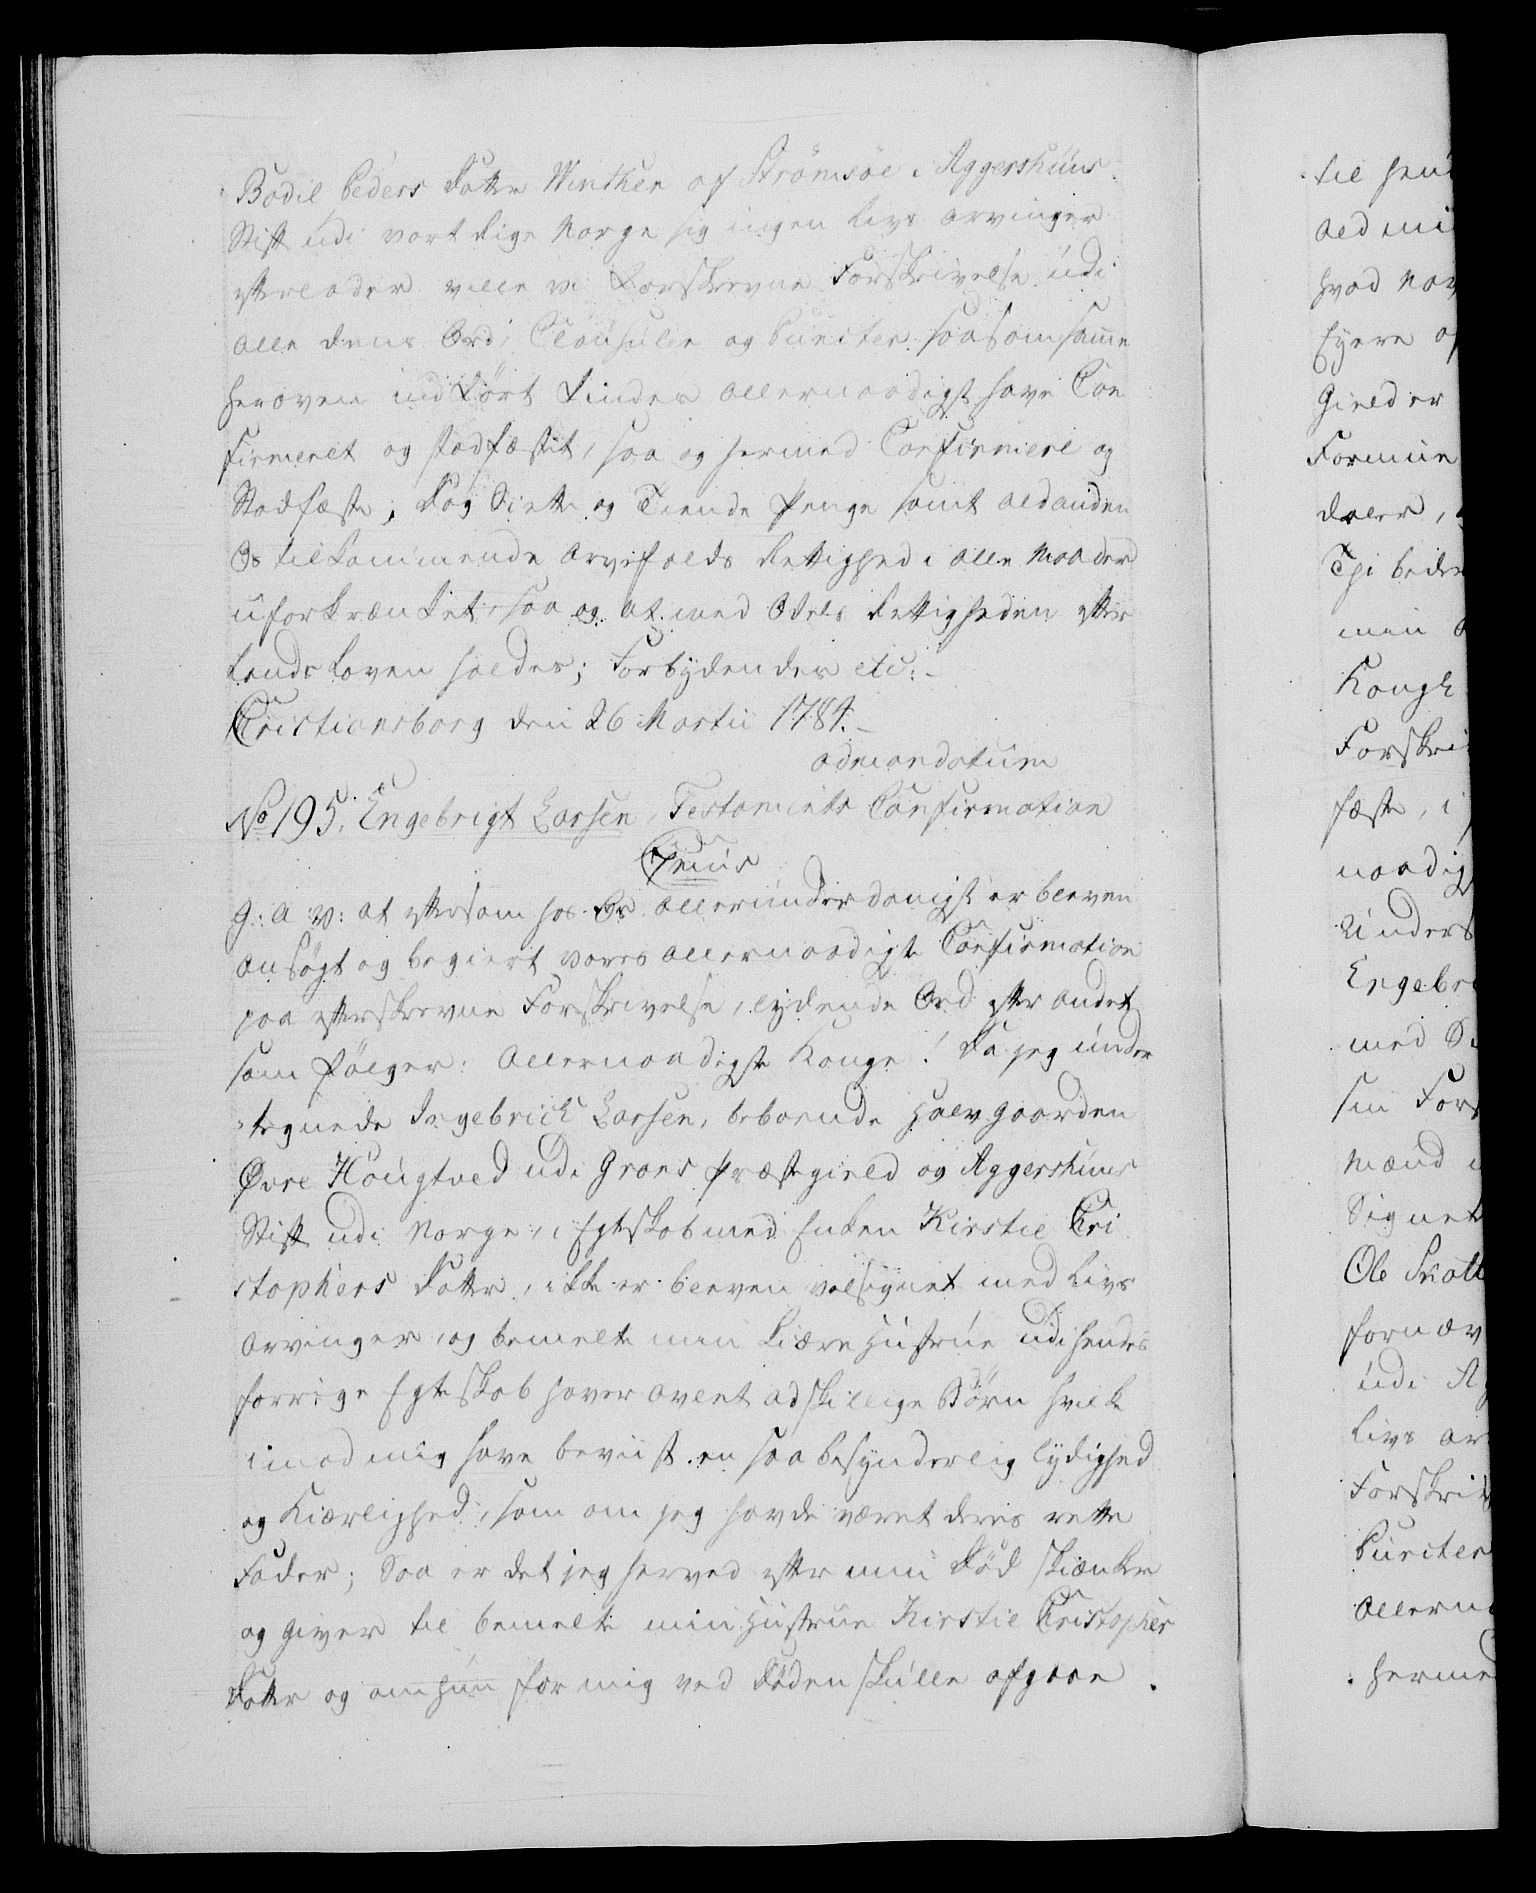 Bodil Peders Datter Winther af Strømsøe i Aggershuus
Stift udi vort Rige Norge sig ingen Livs Arvinger
efterlader ville vi forskrevne Forskrivelse udi
alle dens Ord, Clausuler og Puncter saasom samme
heroven indført findes allernaadigst have Con
firmeret og stadfæstet, saa og hermed Confirmere og
Stadfæste, dog Siette og Tiende Penge samt ald anden
Os tilkommende Arvefalds Rettighed i alle Maader
uforkrænket, saa og at med Odels Rettigheden efter
Lands Loven holdes; Forbydendes etc:
Cristiansborg den 26 Martii 1784.
ad mandatum
No 195. Engebrigt Larsen, Testaments Confirmation
G: A: V: at eftersom hos Os allerunderdanigst er bleven
ansøgt og begiert vores allernaadigste Confirmation
paa efterskrevne Forskrivelse, lydende Ord efter andet
som følger: Allernaadigste Konge! Da jeg under
tegnede Ingebrick Larsen, beboende Halvgaarden
Øvre Hougtved udi Grans Præstegield og Aggershuus
Stift udi Norge, i Egteskab med Enken Kirstie Cri
stophers Datter, ikke er bleven velsignet med Livs
Arvinger, og bemelte min kiære Hustrue udi hendes
forrige Egteskab haver avlet adskillige Børn hvilke
imod mig have beviist en saa besynderlig lydighed
og Kiærlighed, som om jeg havde været deres rette
Fader; Saa er det jeg herved efter min Død skienker
og giver til bemelte min Hustrue Kirstie Cristophers
Datter og om hun før mig ved Døden skulle afgaae

til hen
ald mi
hvad Nav
Eyere
Gield er
Formue
daler,
Thi beder
min
Kongl
Forskri
fæste, i
naadig
Unders
Engebri
med
sin For
mænd
Signet
Ole
fornæv
udi A
Livs ar
Forskriv
Puncter
Allerna
herme